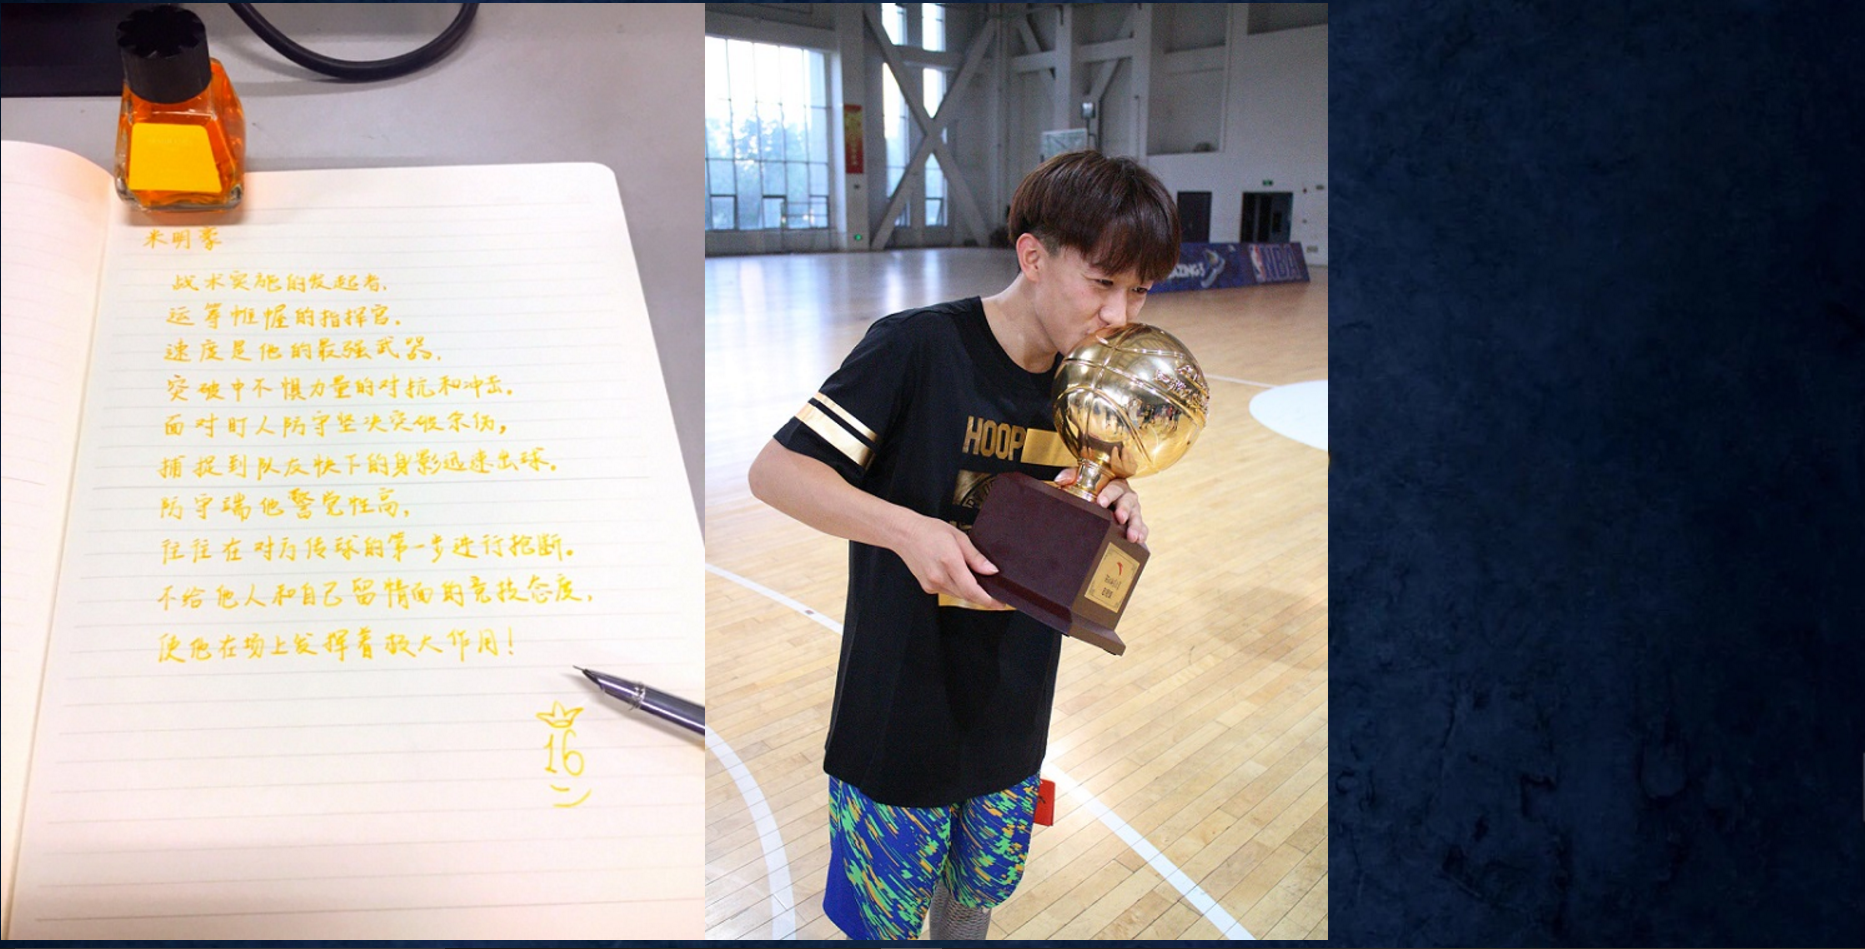 米明豪
战术实施的发起者.
运筹帷幄的指挥官.
速度是他的最强武器.
突破中不惧力量的对抗和冲击.
面对盯人防守坚决突破杀伤,
捕捉到队友快下的身影迅速出球.
防守端他警觉性高,
往往在对方传球的第一步进行抢断.
不给他人和自己留情面的竞技态度,
使他在场上发挥着极大作用!
16
HOOP
NBA